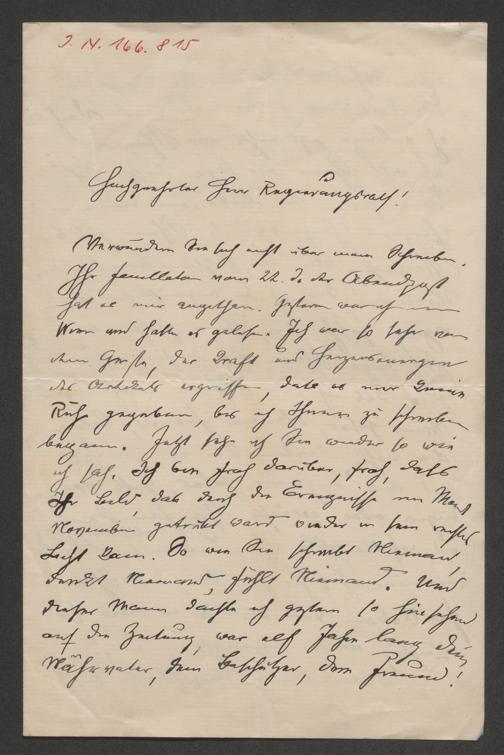 J. N. 166.815
Hochgeehrter Herr Regierungsrath!
Verwundern Sie sich nicht über mein Schreiben.
Ihr Feuilleton vom 22. d. der Abendpost
hat es mir angethan. Gestern war ich in
Wien und hatte es gelesen. Ich war so sehr von
dem Geiste, der Kraft und Herzens
des Artikels ergriffen, daß es mir keine
Ruhe gegeben, bis ich Ihnen zu schreiben
begann. Jetzt sehe ich Sie wieder so wie
ich sah. Ich bin froh darüber, froh, daß
Ihr Bild, das durch die Ereignisse im Monat
November getrübt ward wieder in sein rechtes
Licht kam. So wie Sie schreibt Niemand,
denkt Niemand, fühlt Niemand. Und
dieser Mann dachte ich gestern so hinsehend
auf die Zeitung, war elf Jahre lang dein
Nährvater, dein Beschützer, dein Freund!